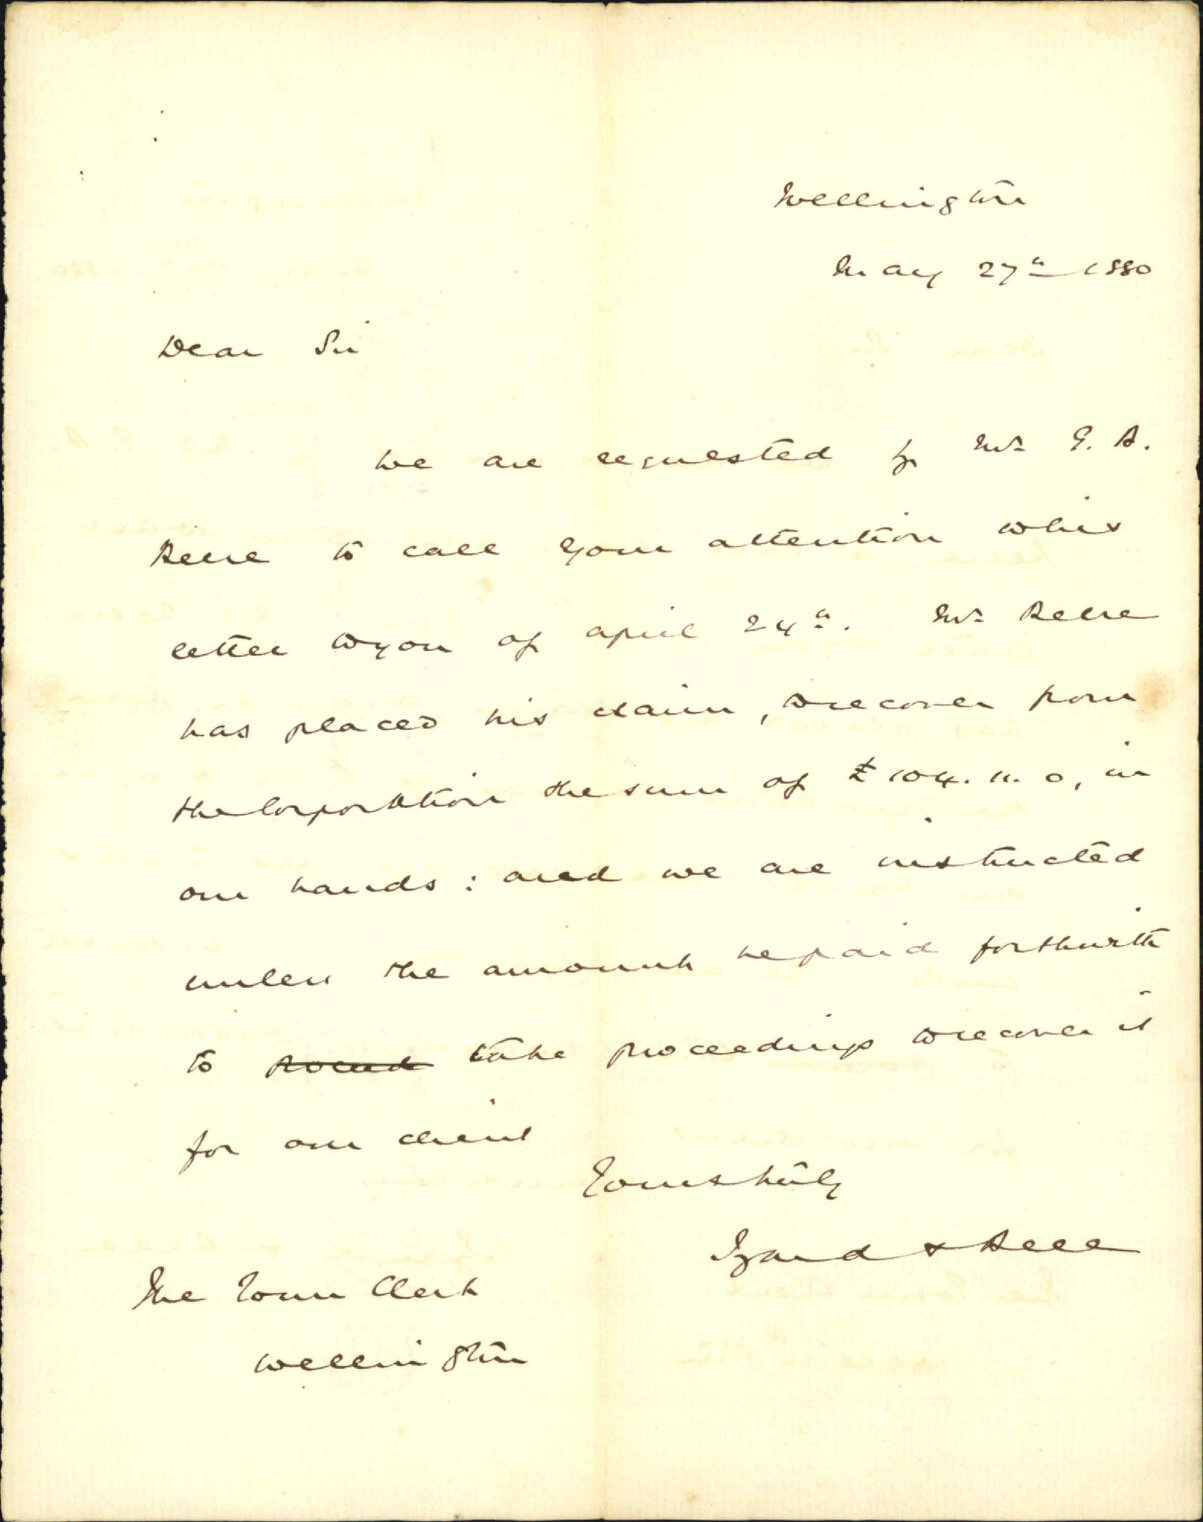 Wellington
May 27th 1880
Dear Sir
We are requested by Mr G. A.
to call your attention to his
letter to you of april 24th. Mr
has placed his claim, to recover from
the Corporation the sum of £104. 11. 0, in
our hands: and we are instructed
unless the amount be paid forthwith
to take proceedings to recover it
for our client
Yours truly
Izard & Bell
The Town Clerk
Wellington